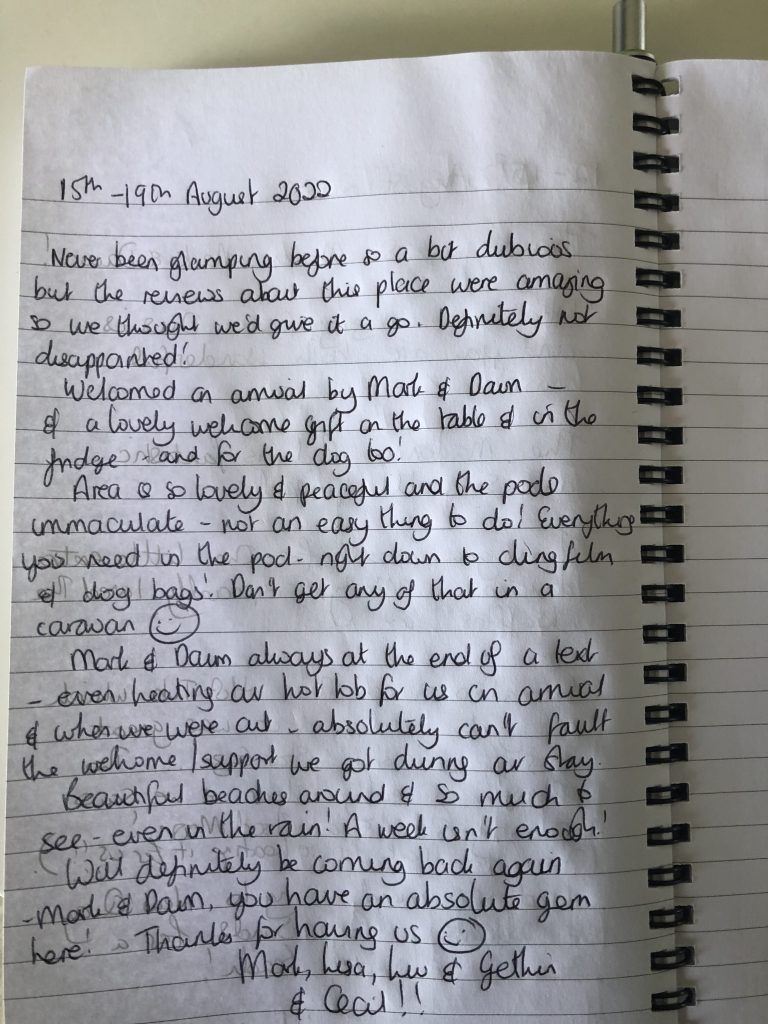 15th - 19th August 2020
Never been glamping before so a bit dubious
but the reviews about this place were amazing
so we thought we'd give it a go. Definitely not
disappointed!
Welcomed on arrival by Mark & Dawn -
& a lovely welcome gift on the table & in the
fridge - and for the dog too!
Area is so lovely & peaceful and the pods
immaculate - not an easy thing to do! Everything
you need in the pod - right down to cling film
& dog bags! Don't get any of that in a
caravan
Mark & Dawn always at the end of a text
- even heating our hot tub for us on arrival
& when we were out - absolutely can't fault
the welcome / support we got during our stay.
Beautiful beaches around & so much to
see, - even in the rain! A week isn't enough!
Will definitely be coming back again
- Mark & Dawn, you have an absolute gem
here! Thanks for having us
Mark, Lisa, & Gethin
& Cecil!!